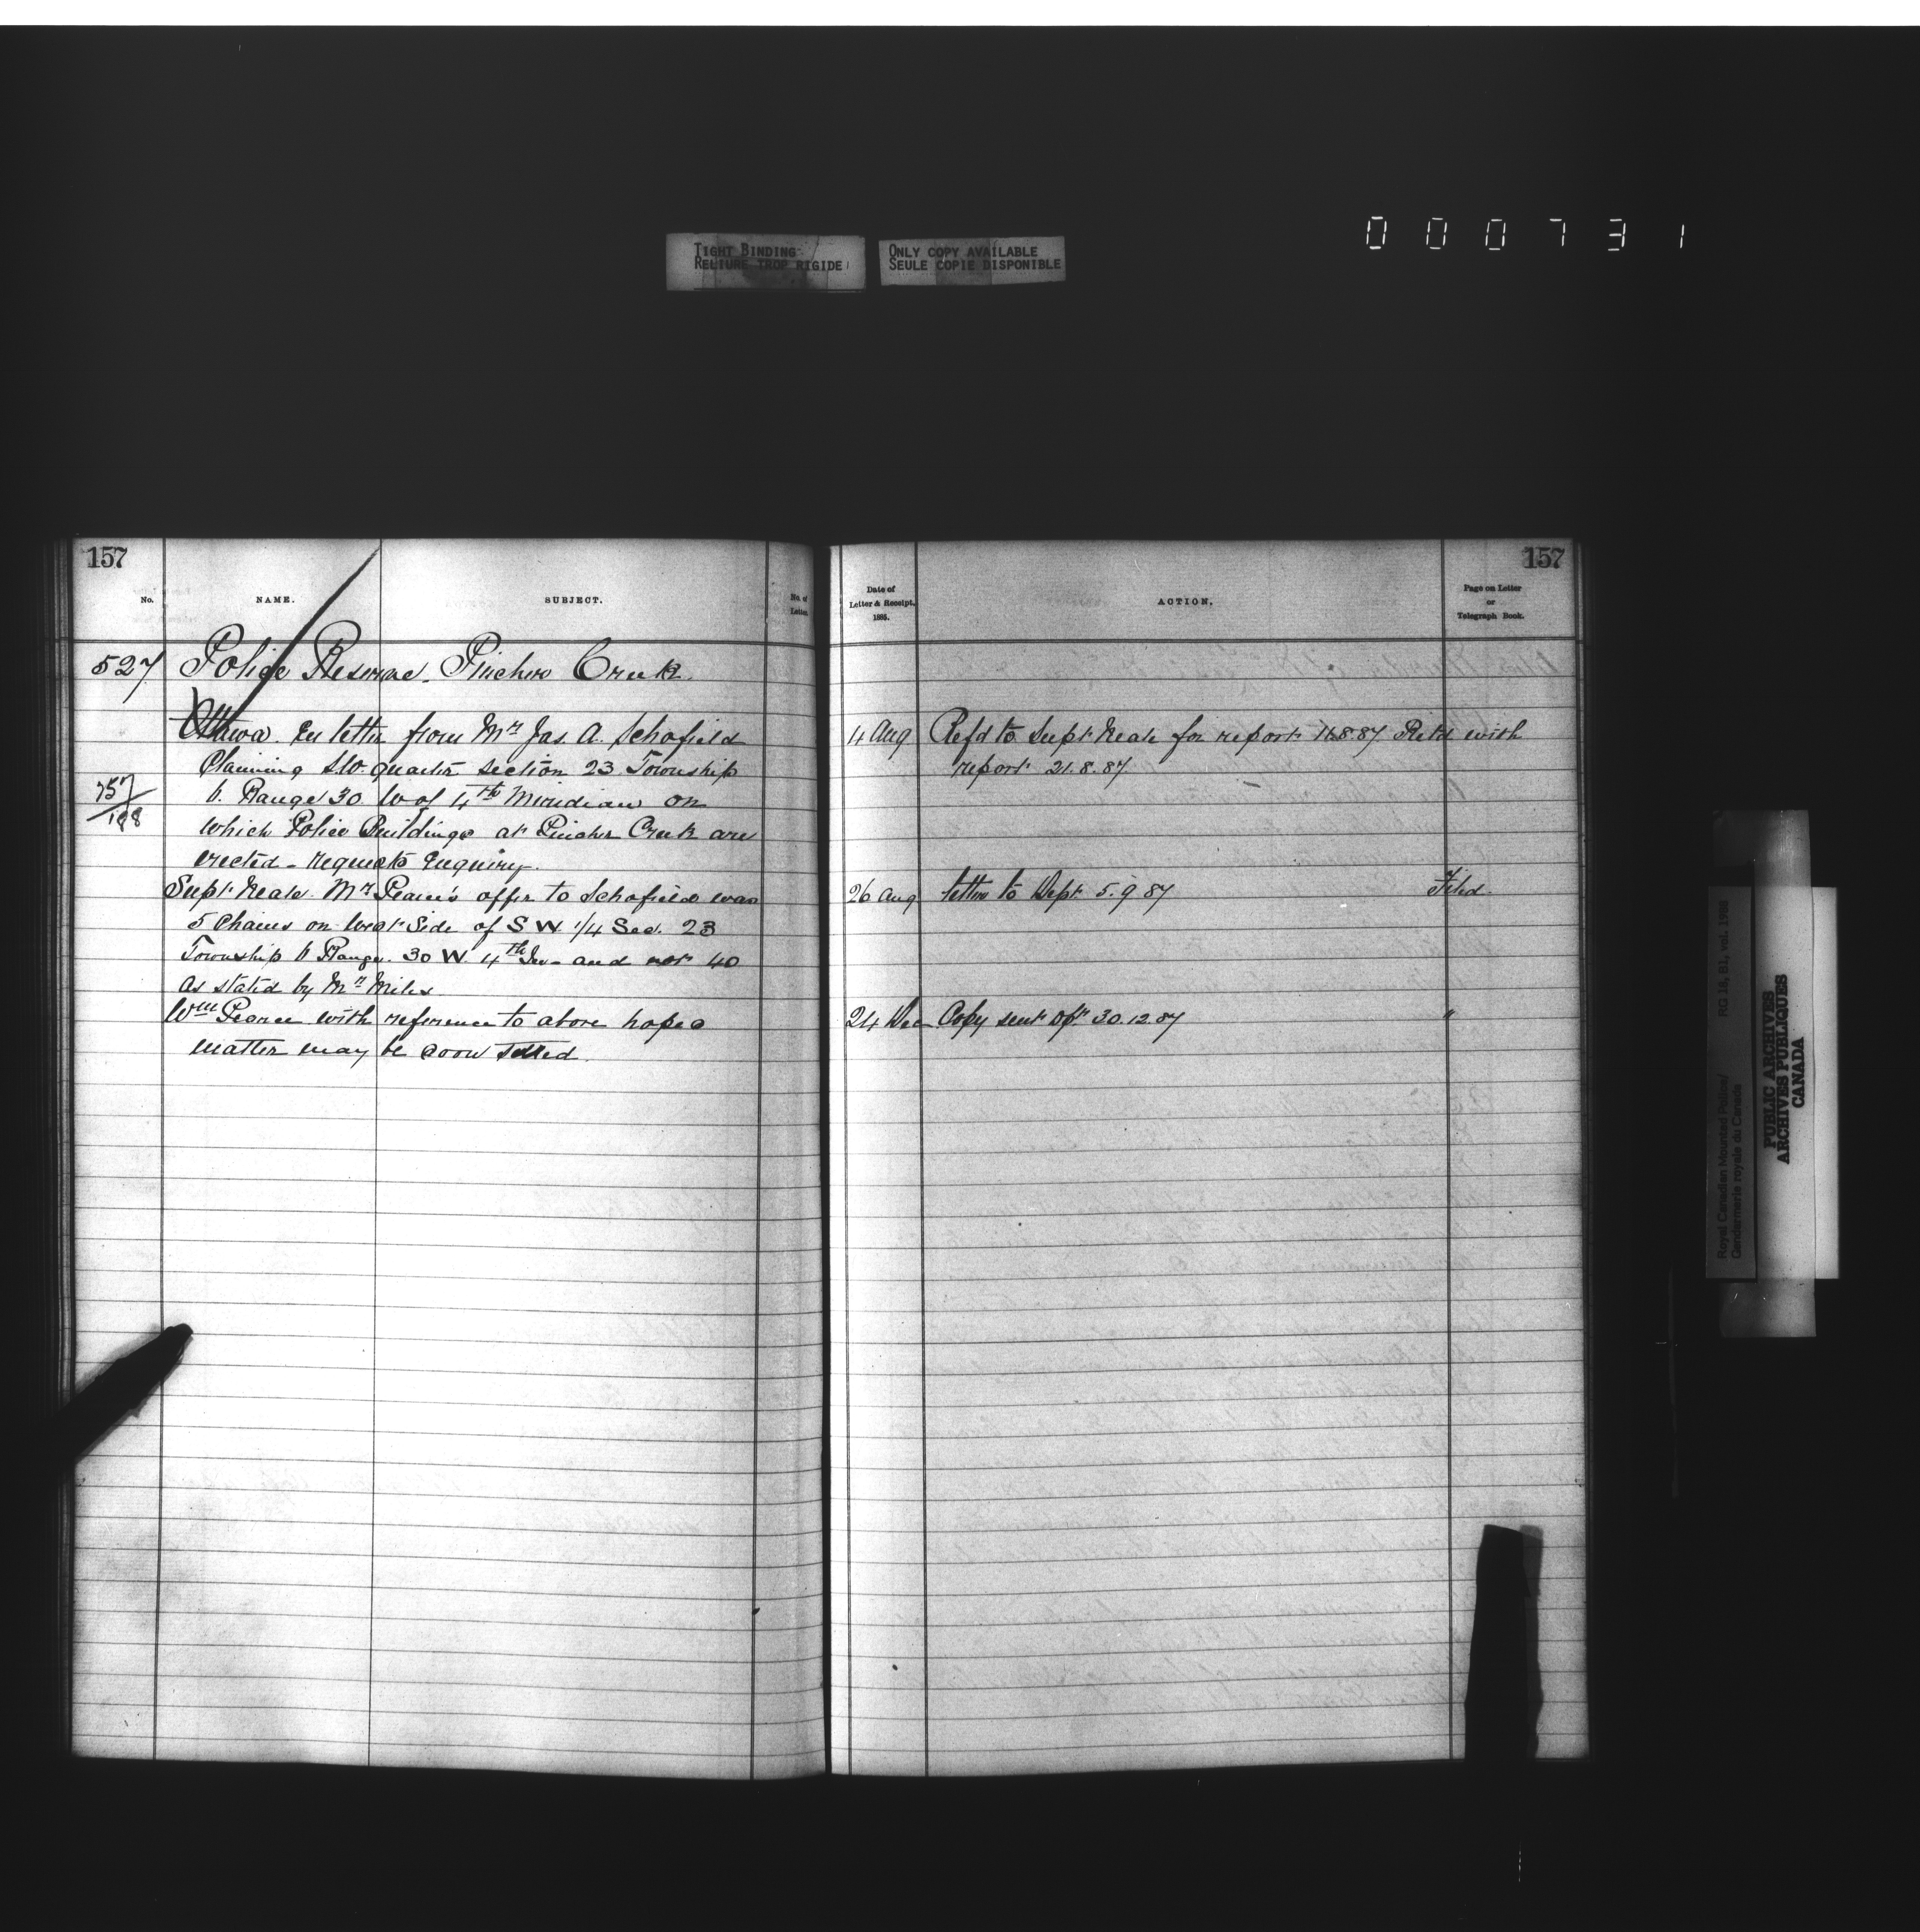 000731
TIGHT BINDING
RELIURE TROP RIGIDE
ONLY COPY AVAILABLE
SEULE COPIE DISPONIBLE
157
No.
NAME.
SUBJECT.
No. of
Letter.
527 Police Reserve. Pincher Creek
Ottawa. En letter from Mr Jas. A. Schofield
Claiming S.W. quarter section 23 Township
6. Range 30 W of 4th Meridian on
757/188
which Police Buildings at Pincher Creek are
erected - requests Enquiry.
Supt Neale. Mr Pearce's offer to Schofield was
5 Chains on West Side of S W 1/4 Sec. 23
Township 6 Range. 30 W. 4th and not 40
as stated by Mr Miles
Wm Pearce with reference to above hopes
matter may be soon settled.
157
Date of
Letter & Receipt.
1885.
ACTION.
Page on Letter
or
Telegraph Book.
4 Aug Refd to Supt Neale for report 14.8.87 Retd with
report 21.8.87
26 Aug letter to Dept 5.9.87 Filed.
24 Dec Copy sent Dpt 30.12.87 "
Royal Canadian Mounted Police/
Gendarmerie royale du Canada
RG 18, B1, vol. 1988
PUBLIC ARCHIVES
ARCHIVES PUBLIQUES
CANADA